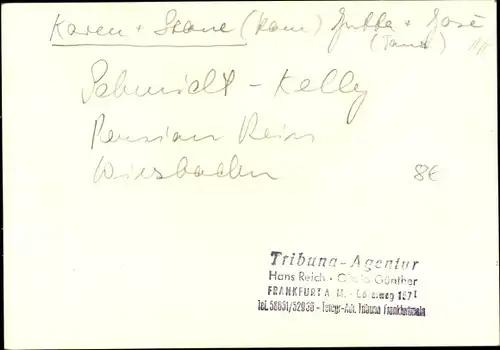 Karen + Stane (Kom) Jutta + José
(Tanz)
Schmidt - Kelly
Pension Rein
Wiesbaden
8€
Tribuna-Agentur
Hans Reich · Günther
FRANKFURT A. M. -
Tel. 58831/52938 - Telegr.-Adr. Tribuna Frankfurtmain